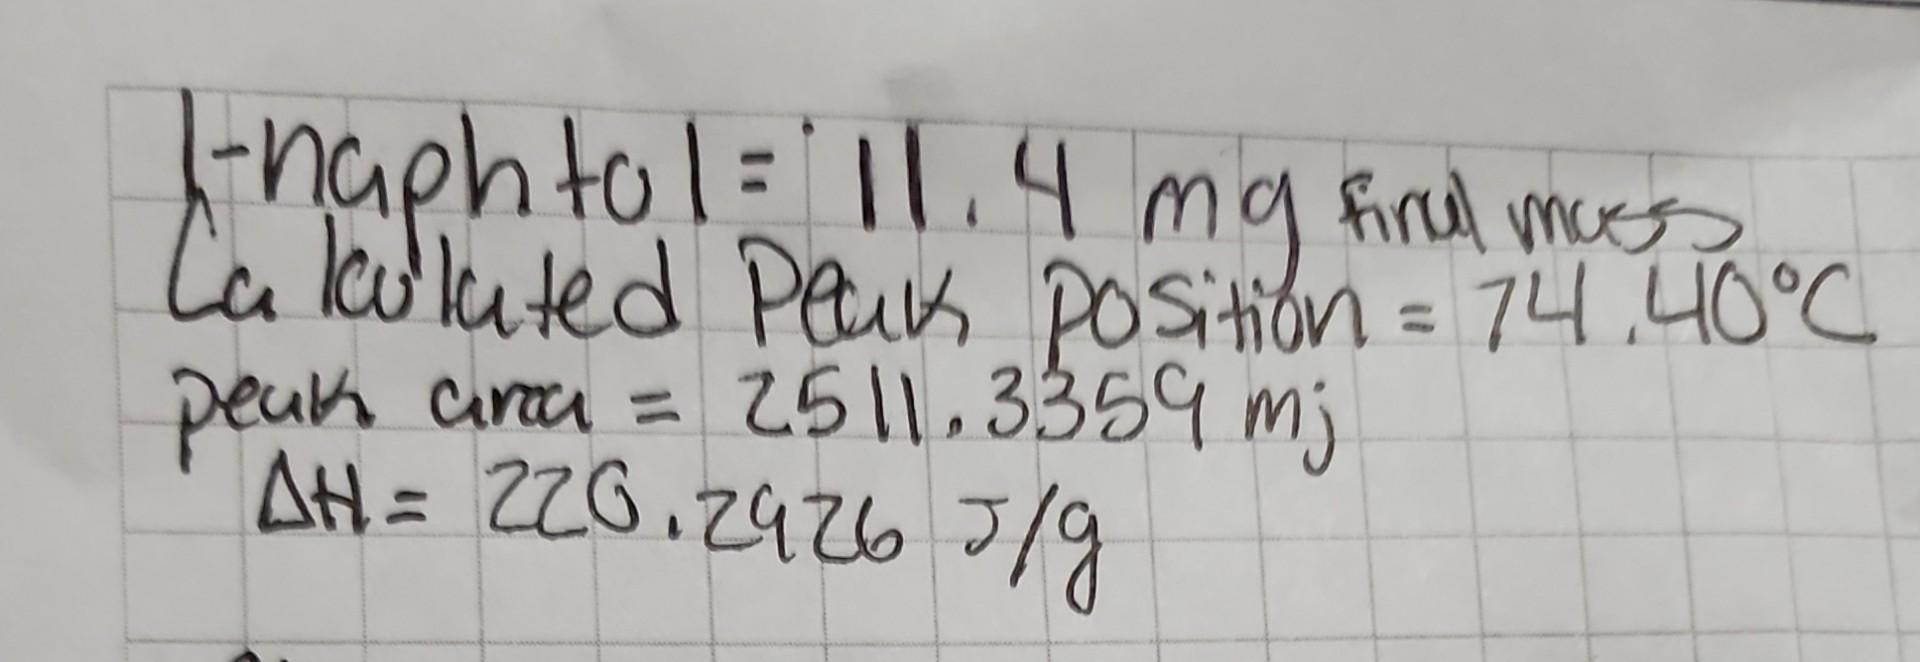 1-naphtol = 11.4 mg final mass
Calculated Peak position = 74.40°C
peak area = 2511.3359 mj
ΔH = 220.2926 J/g